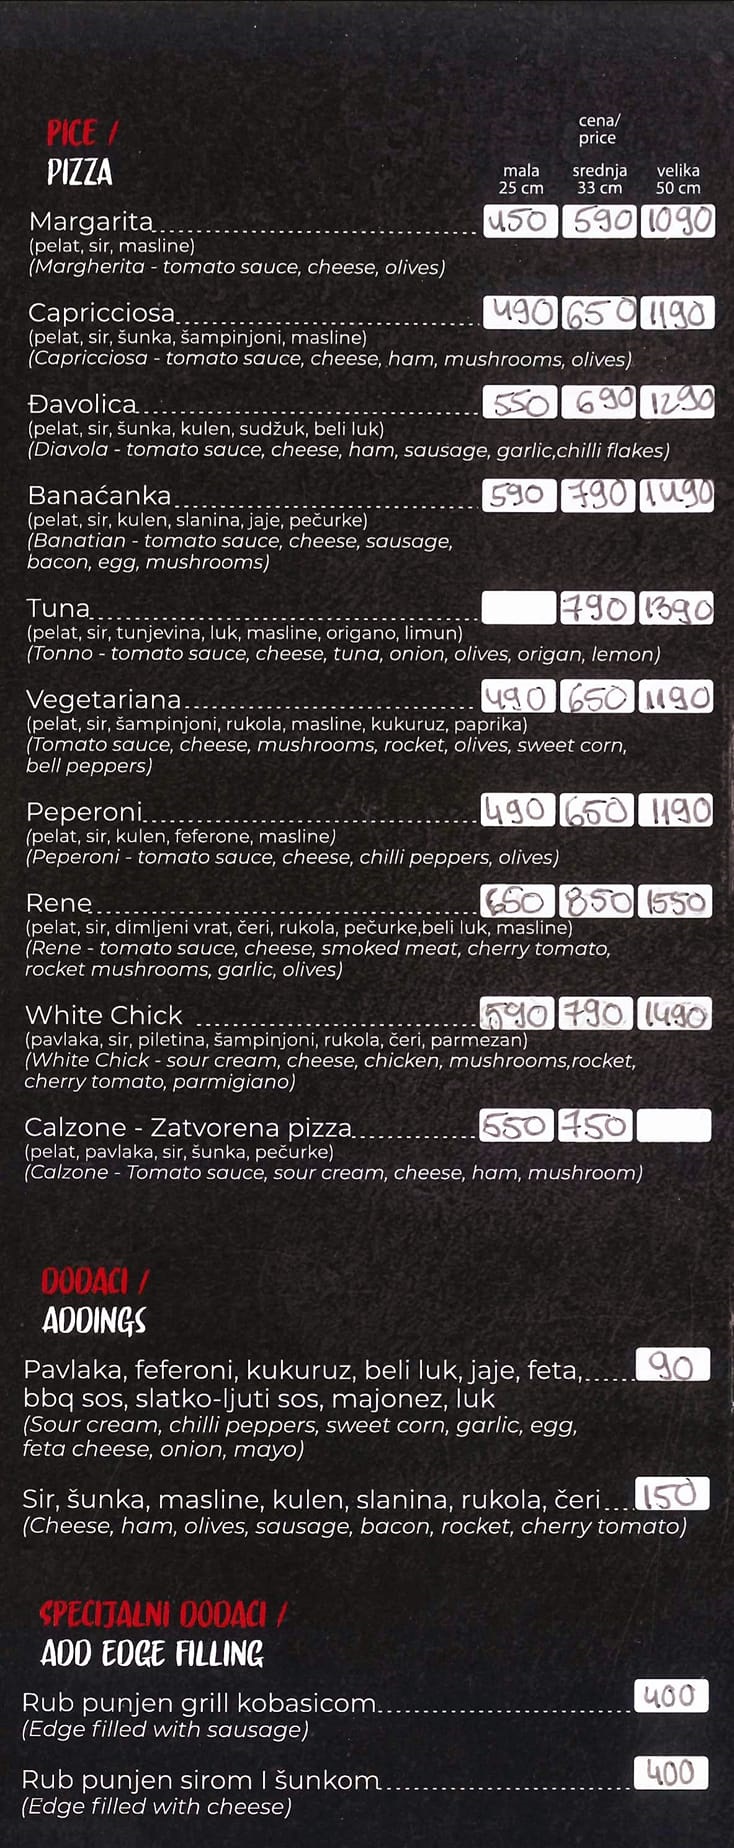 PICE /
PIZZA
cena/
price
mala srednja velika
25 cm 33 cm 50 cm
Margarita 450 590 1090
(pelat, sir, masline)
(Margherita - tomato sauce, cheese, olives)
Capricciosa 490 650 1190
(pelat, sir, šunka, šampinjoni, masline)
(Capricciosa - tomato sauce, cheese, ham, mushrooms, olives)
Đavolica 550 690 1290
(pelat, sir, šunka, kulen, sudžuk, beli luk)
(Diavola - tomato sauce, cheese, ham, sausage, garlic,chilli flakes)
Banaćanka 590 790 1490
(pelat, sir, kulen, slanina, jaje, pečurke)
(Banatian - tomato sauce, cheese, sausage,
bacon, egg, mushrooms)
Tuna 790 1390
(pelat, sir, tunjevina, luk, masline, origano, limun)
(Tonno - tomato sauce, cheese, tuna, onion, olives, origan, lemon)
Vegetariana 490 650 1190
(pelat, sir, šampinjoni, rukola, masline, kukuruz, paprika)
(Tomato sauce, cheese, mushrooms, rocket, olives, sweet corn,
bell peppers)
Peperoni 490 650 1190
(pelat, sir, kulen, feferone, masline)
(Peperoni - tomato sauce, cheese, chilli peppers, olives)
Rene 650 850 1550
(pelat, sir, dimljeni vrat, čeri, rukola, pečurke,beli luk, masline)
(Rene - tomato sauce, cheese, smoked meat, cherry tomato,
rocket mushrooms, garlic, olives)
White Chick 590 790 1490
(pavlaka, sir, piletina, šampinjoni, rukola, čeri, parmezan)
(White Chick - sour cream, cheese, chicken, mushrooms,rocket,
cherry tomato, parmigiano)
Calzone - Zatvorena pizza 550 750
(pelat, pavlaka, sir, šunka, pečurke)
(Calzone - Tomato sauce, sour cream, cheese, ham, mushroom)
DODACI /
ADDINGS
Pavlaka, feferoni, kukuruz, beli luk, jaje, feta, 90
bbq sos, slatko-ljuti sos, majonez, luk
(Sour cream, chilli peppers, sweet corn, garlic, egg,
feta cheese, onion, mayo)
Sir, šunka, masline, kulen, slanina, rukola, čeri 150
(Cheese, ham, olives, sausage, bacon, rocket, cherry tomato)
SPECIJALNI DODACI /
ADD EDGE FILLING
Rub punjen grill kobasicom 400
(Edge filled with sausage)
Rub punjen sirom I šunkom 400
(Edge filled with cheese)